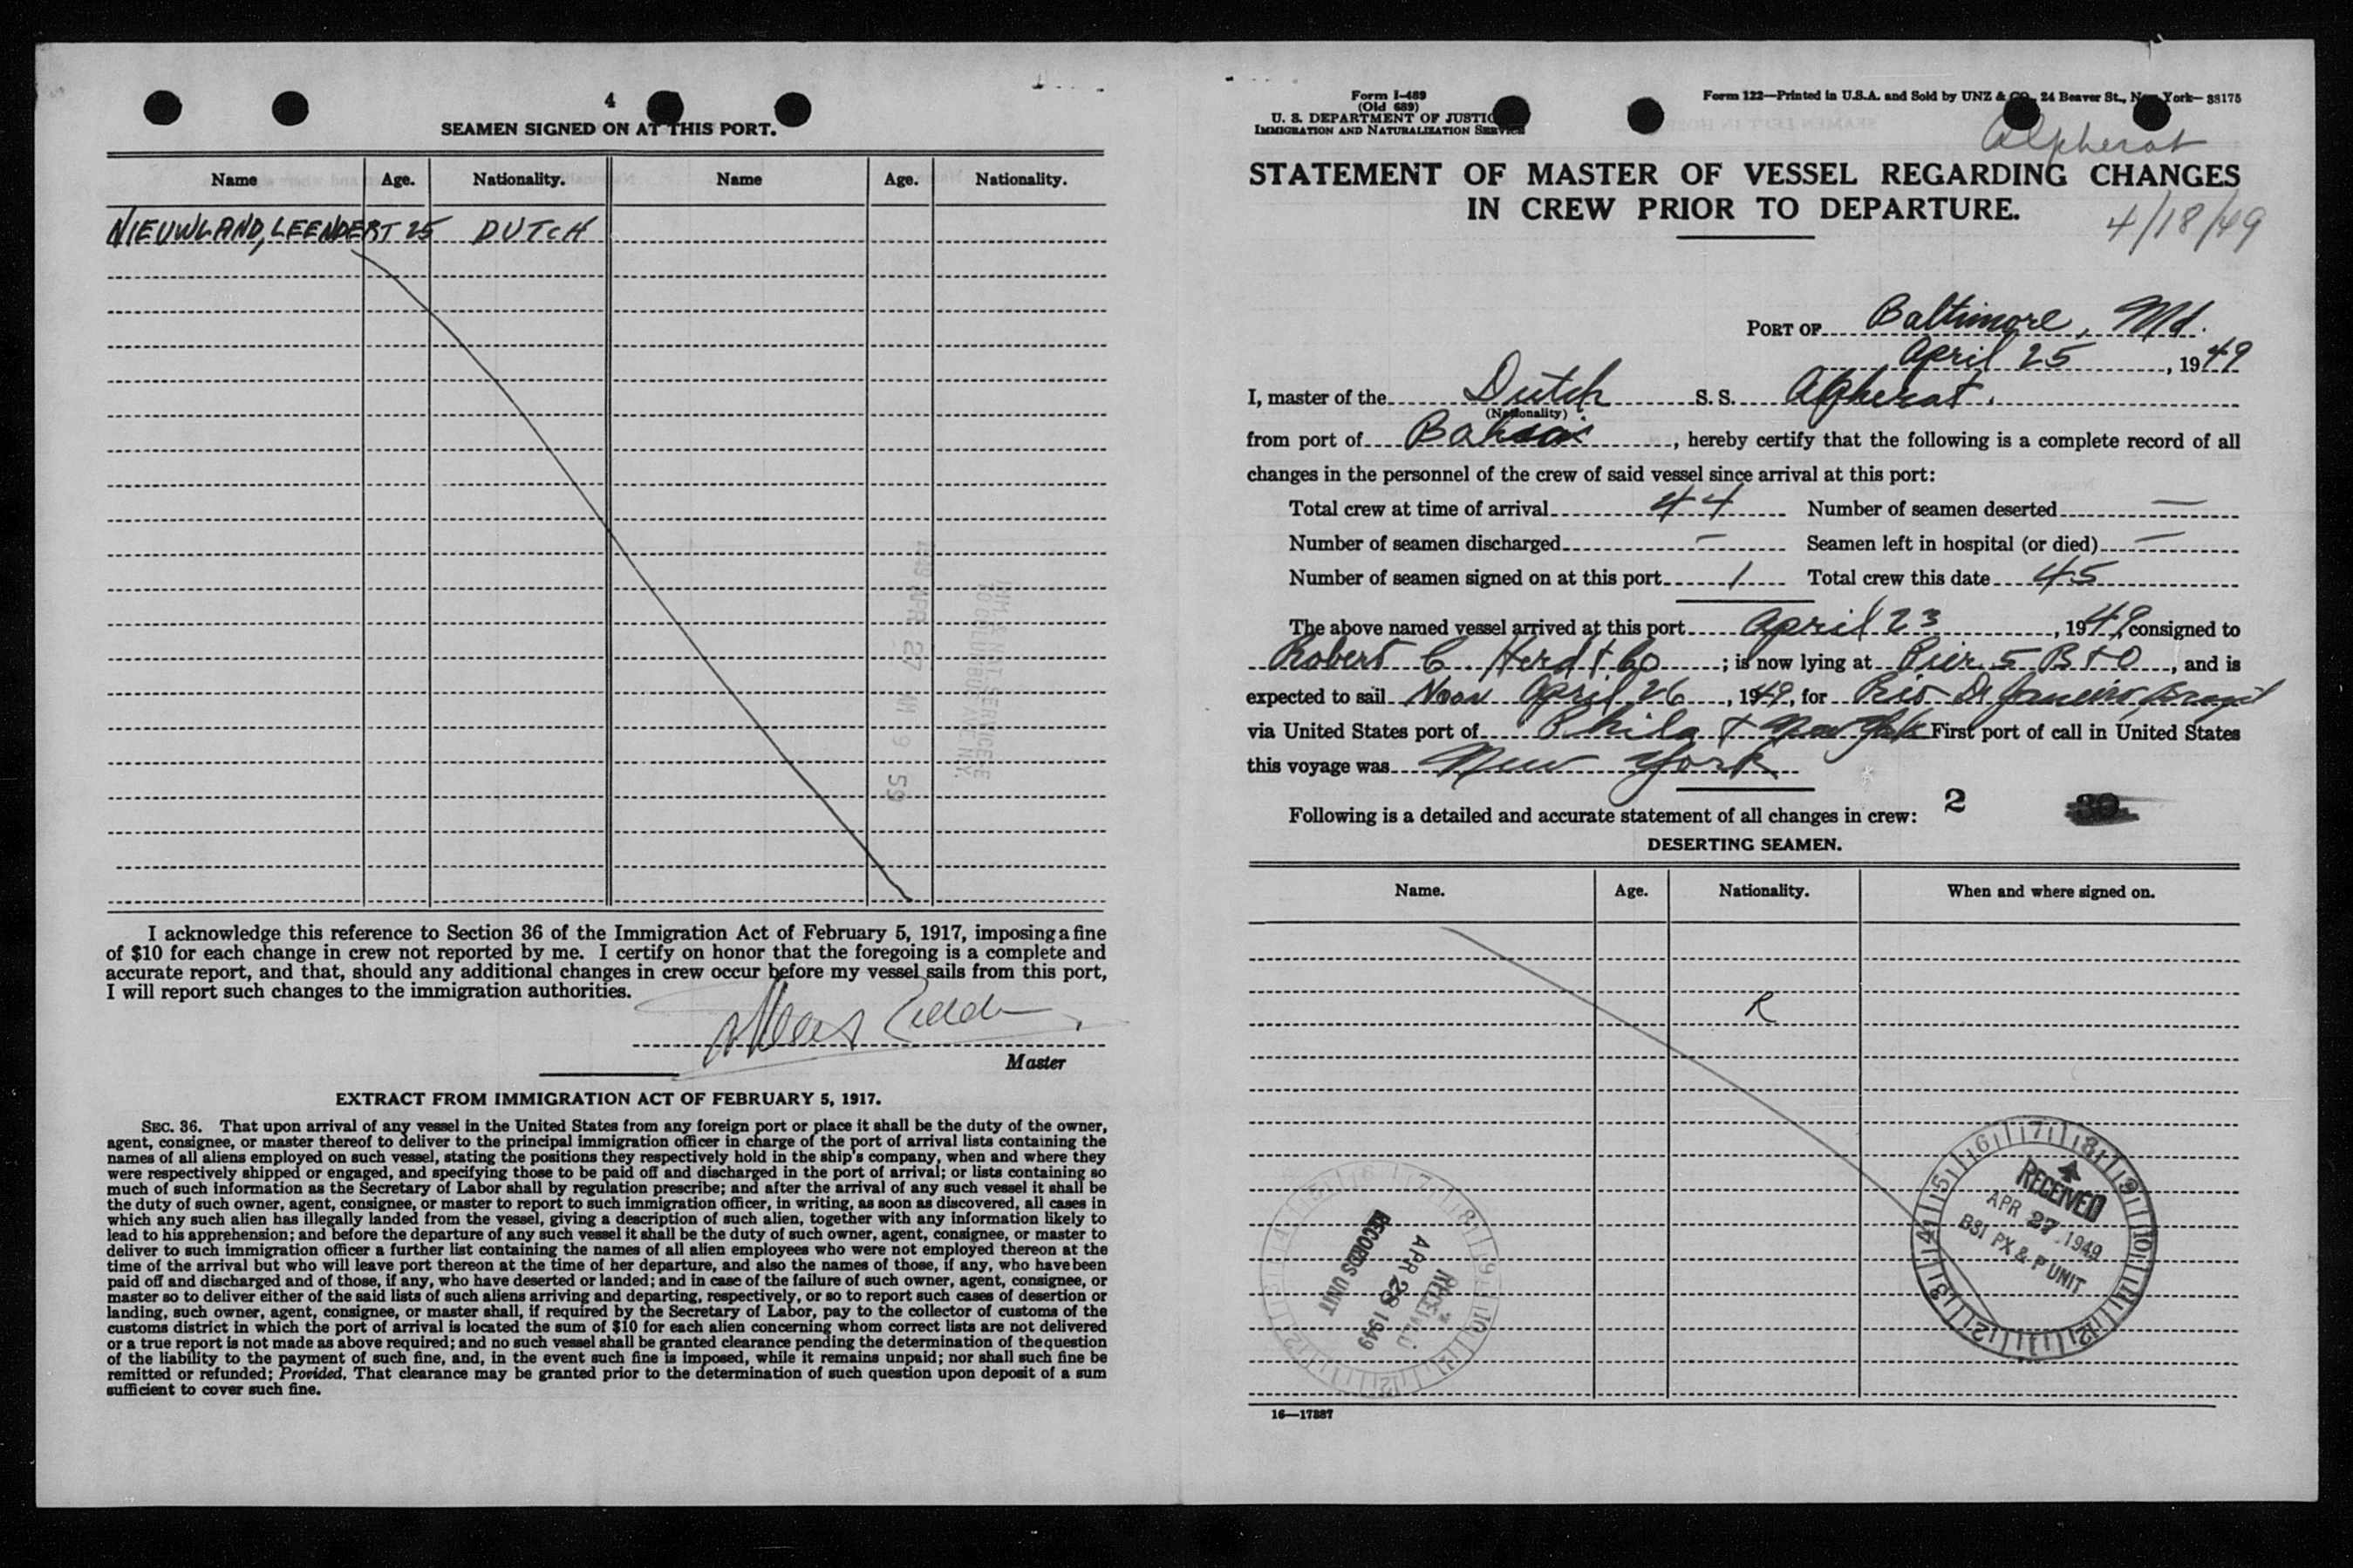 4
SEAMEN SIGNED ON AT THIS PORT.
Name Age. Nationality. Name Age. Nationality.
NIEUWLAND, LEENDERT 25 DUTCH
I acknowledge this reference to Section 36 of the Immigration Act of February 5, 1917, imposing a fine
of $10 for each change in crew not reported by me. I certify on honor that the foregoing is a complete and
accurate report, and that, should any additional changes in crew occur before my vessel sails from this port,
I will report such changes to the immigration authorities.
Master
EXTRACT FROM IMMIGRATION ACT OF FEBRUARY 5, 1917.
SEC. 36. That upon arrival of any vessel in the United States from any foreign port or place it shall be the duty of the owner,
agent, consignee, or master thereof to deliver to the principal immigration officer in charge of the port of arrival lists containing the
names of all aliens employed on such vessel, stating the positions they respectively hold in the ship's company, when and where they
were respectively shipped or engaged, and specifying those to be paid off and discharged in the port of arrival; or lists containing so
much of such information as the Secretary of Labor shall by regulation prescribe; and after the arrival of any such vessel it shall be
the duty of such owner, agent, consignee, or master to report to such immigration officer, in writing, as soon as discovered, all cases in
which any such alien has illegally landed from the vessel, giving a description of such alien, together with any information likely to
lead to his apprehension; and before the departure of any such vessel it shall be the duty of such owner, agent, consignee, or master to
deliver to such immigration officer a further list containing the names of all alien employees who were not employed thereon at the
time of the arrival but who will leave port thereon at the time of her departure, and also the names of those, if any, who have been
paid off and discharged and of those, if any, who have deserted or landed; and in case of the failure of such owner, agent, consignee, or
master so to deliver either of the said lists of such aliens arriving and departing, respectively, or so to report such cases of desertion or
landing, such owner, agent, consignee, or master shall, if required by the Secretary of Labor, pay to the collector of customs of the
customs district in which the port of arrival is located the sum of $10 for each alien concerning whom correct lists are not delivered
or a true report is not made as above required; and no such vessel shall be granted clearance pending the determination of the question
of the liability to the payment of such fine, and, in the event such fine is imposed, while it remains unpaid; nor shall such fine be
remitted or refunded; Provided, That clearance may be granted prior to the determination of such question upon deposit of a sum
sufficient to cover such fine.
Form I-489
(Old 689)
U. S. DEPARTMENT OF JUSTICE
IMMIGRATION AND NATURALIZATION SERVICE
Form 122—Printed in U.S.A. and Sold by UNZ & CO., 24 Beaver St., New York—38175
Alpherat
STATEMENT OF MASTER OF VESSEL REGARDING CHANGES
IN CREW PRIOR TO DEPARTURE.
4/18/49
PORT OF Baltimore, Md.
April 25, 1949
I, master of the Dutch S. S. Alpherat.
(Nationality)
from port of , hereby certify that the following is a complete record of all
changes in the personnel of the crew of said vessel since arrival at this port:
Total crew at time of arrival 44 Number of seamen deserted —
Number of seamen discharged — Seamen left in hospital (or died) —
Number of seamen signed on at this port 1 Total crew this date 45
The above named vessel arrived at this port April 23, 1949, consigned to
Robert C. Herd & Co; is now lying at Pier 5 B & O, and is
expected to sail Noon April 26, 1949, for Rio De Janeiro, Brazil
via United States port of Phila & New York First port of call in United States
this voyage was New York
Following is a detailed and accurate statement of all changes in crew: 2
DESERTING SEAMEN.
Name. Age. Nationality. When and where signed on.
R
RECEIVED
APR 27 1949
BSI PX & P UNIT
RECORDS UNIT
APR 28 1949
RECEIVED
16—17887